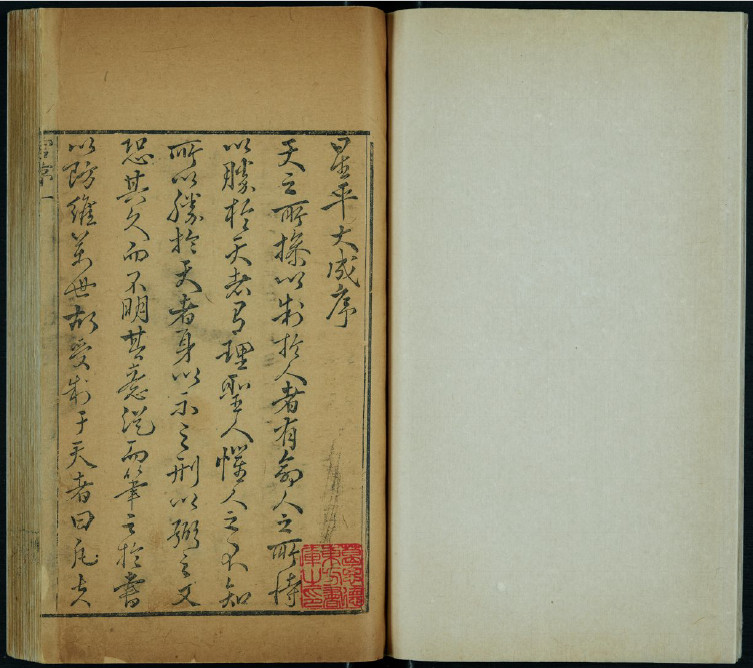 星平大成序
天之所操以制於人者有命人之所恃
以勝於天者有理聖人懼人之不知
所以勝於天者身以示之刑以弼之又
恐其久而不明其意從而筆之於書
以防維萬世故受制于天者曰
葛思德
東方書
庫之印